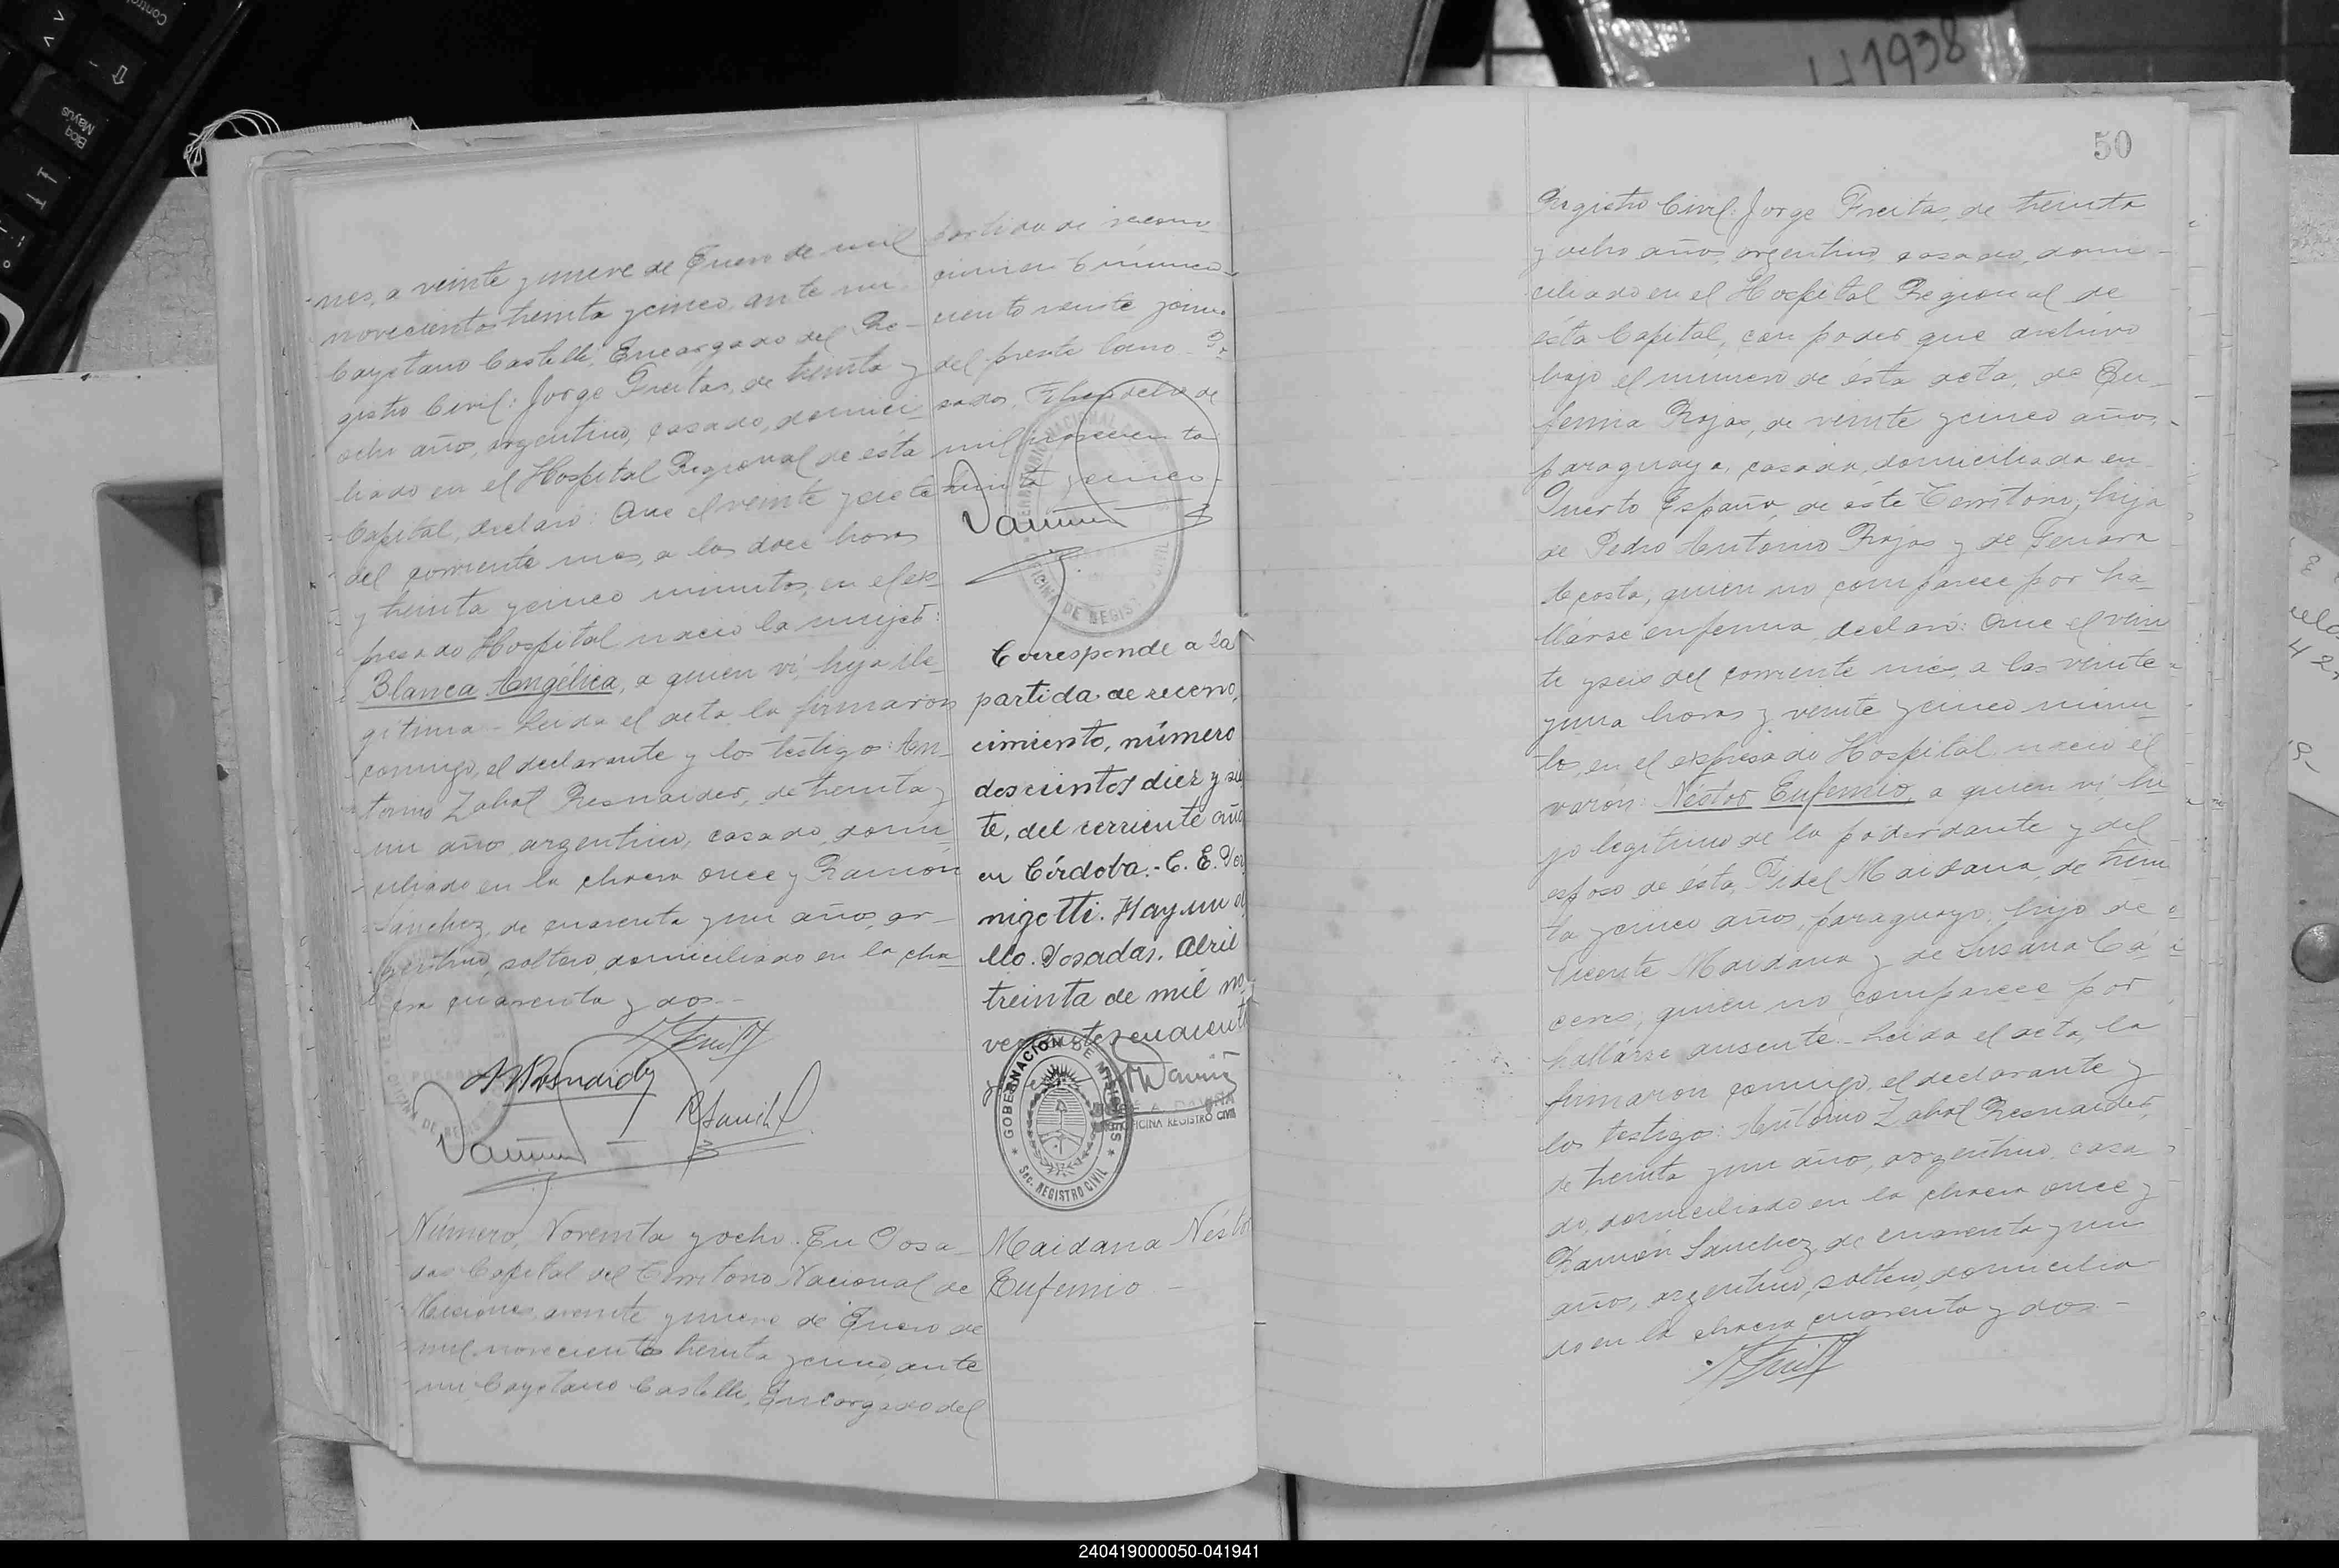 nes, a veinte y nueve de Enero de mil
novecientos treinta y cinco, ante mi
Cayetano Castelli, Encargado del Re-
gistro Civil: Jorge Freitas, de treinta y
ocho años, argentino, casado, domici-
liado en el Hospital Regional de ésta
Capital, declaró: Que el veinte y siete
del corriente mes, a las doce horas
y treinta y cinco minutos, en el ex-
presado Hospital nació la mujer:
Blanca Angélica, a quien ví, hija ile-
gítima - Leída el acta, la firmaron
conmigo, el declarante y los testigos: An-
tonio Zabol Resnaider, de treinta y
un año, argentino, casado, domi-
ciliado en la chacra once y Ramón
Sanchez, de cuarenta y un años, ar-
gentino, soltero, domiciliado en la cha-
cra cuarenta y dos -
partida de recono
cimiento número
ciento veinte y
del presente
sadas, de
mil novecientos
treinta y cinco -
Corresponde a la
partida de recono,
cimiento, número
doscientos diez y sie
te, del corriente año
en Córdoba.- C. E. Dor
nigotti. Hay un
llo. Posadas, Abril
treinta de mil no
vecientos cuarenta
GOBERNACION DE MISIONES
Sec. REGISTRO CIVIL
OFICINA REGISTRO CIVIL
Número, Noventa y ocho. En Posa-
das Capital del Territorio Nacional de
Misiones, a veinte y nueve de Enero de
mil novecientos treinta y cinco, ante
mi Cayetano Castelli, Encargado del
Maidana Nésto
Eufemio -
H1938
50
Registro Civil: Jorge Freitas, de treinta
y ocho años, argentino, casado, domi-
ciliado en el Hospital Regional de
ésta Capital, con poder que archivo
bajo el número de ésta acta, de Eu-
femia Rojas, de veinte y cinco años,
paraguaya, casada, domiciliada en
Puerto España, de éste Territorio, hija
de Pedro Antonio Rojas y de Genara
Acosta, quien no comparece por ha-
llarse enferma, declaró: Que el vein
te y seis del corriente mes, a las veinte
y una horas y veinte y cinco minu
tos, en el expresado Hospital nació el
varón: Néstor Eufemio, a quien ví, hi
jo legítimo de la poderdante y del
esposo de ésta, Fidel Maidana, de trein
ta y cinco años, paraguayo, hijo de
Vicente Maidana y de Susana Cá
ceres, quien no comparece por
hallarse ausente - Leída el acta, la
firmaron conmigo, el declarante y
los testigos: Antonio Zabol Resnaider,
de treinta y un año, argentino, casa
do, domiciliado en la chacra once y
Ramón Sanchez, de cuarenta y un
años, argentino, soltero, domicilia
do en la chacra cuarenta y dos -
240419000050-041941